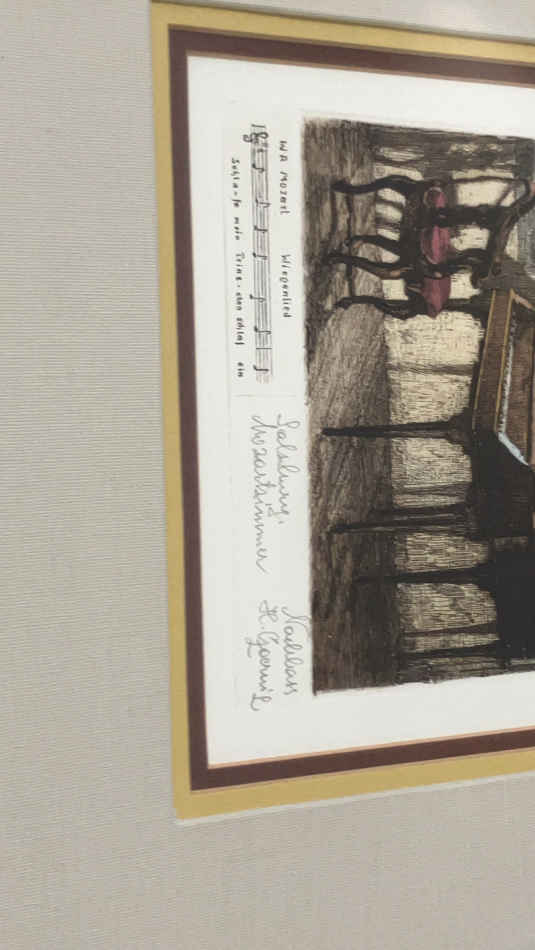 WA Mozart Wiegenlied
Schla-fe mein Prinz-chen schlaf ein
Salzburg,
Mozartzimmer
Nachlass
H. Goernil